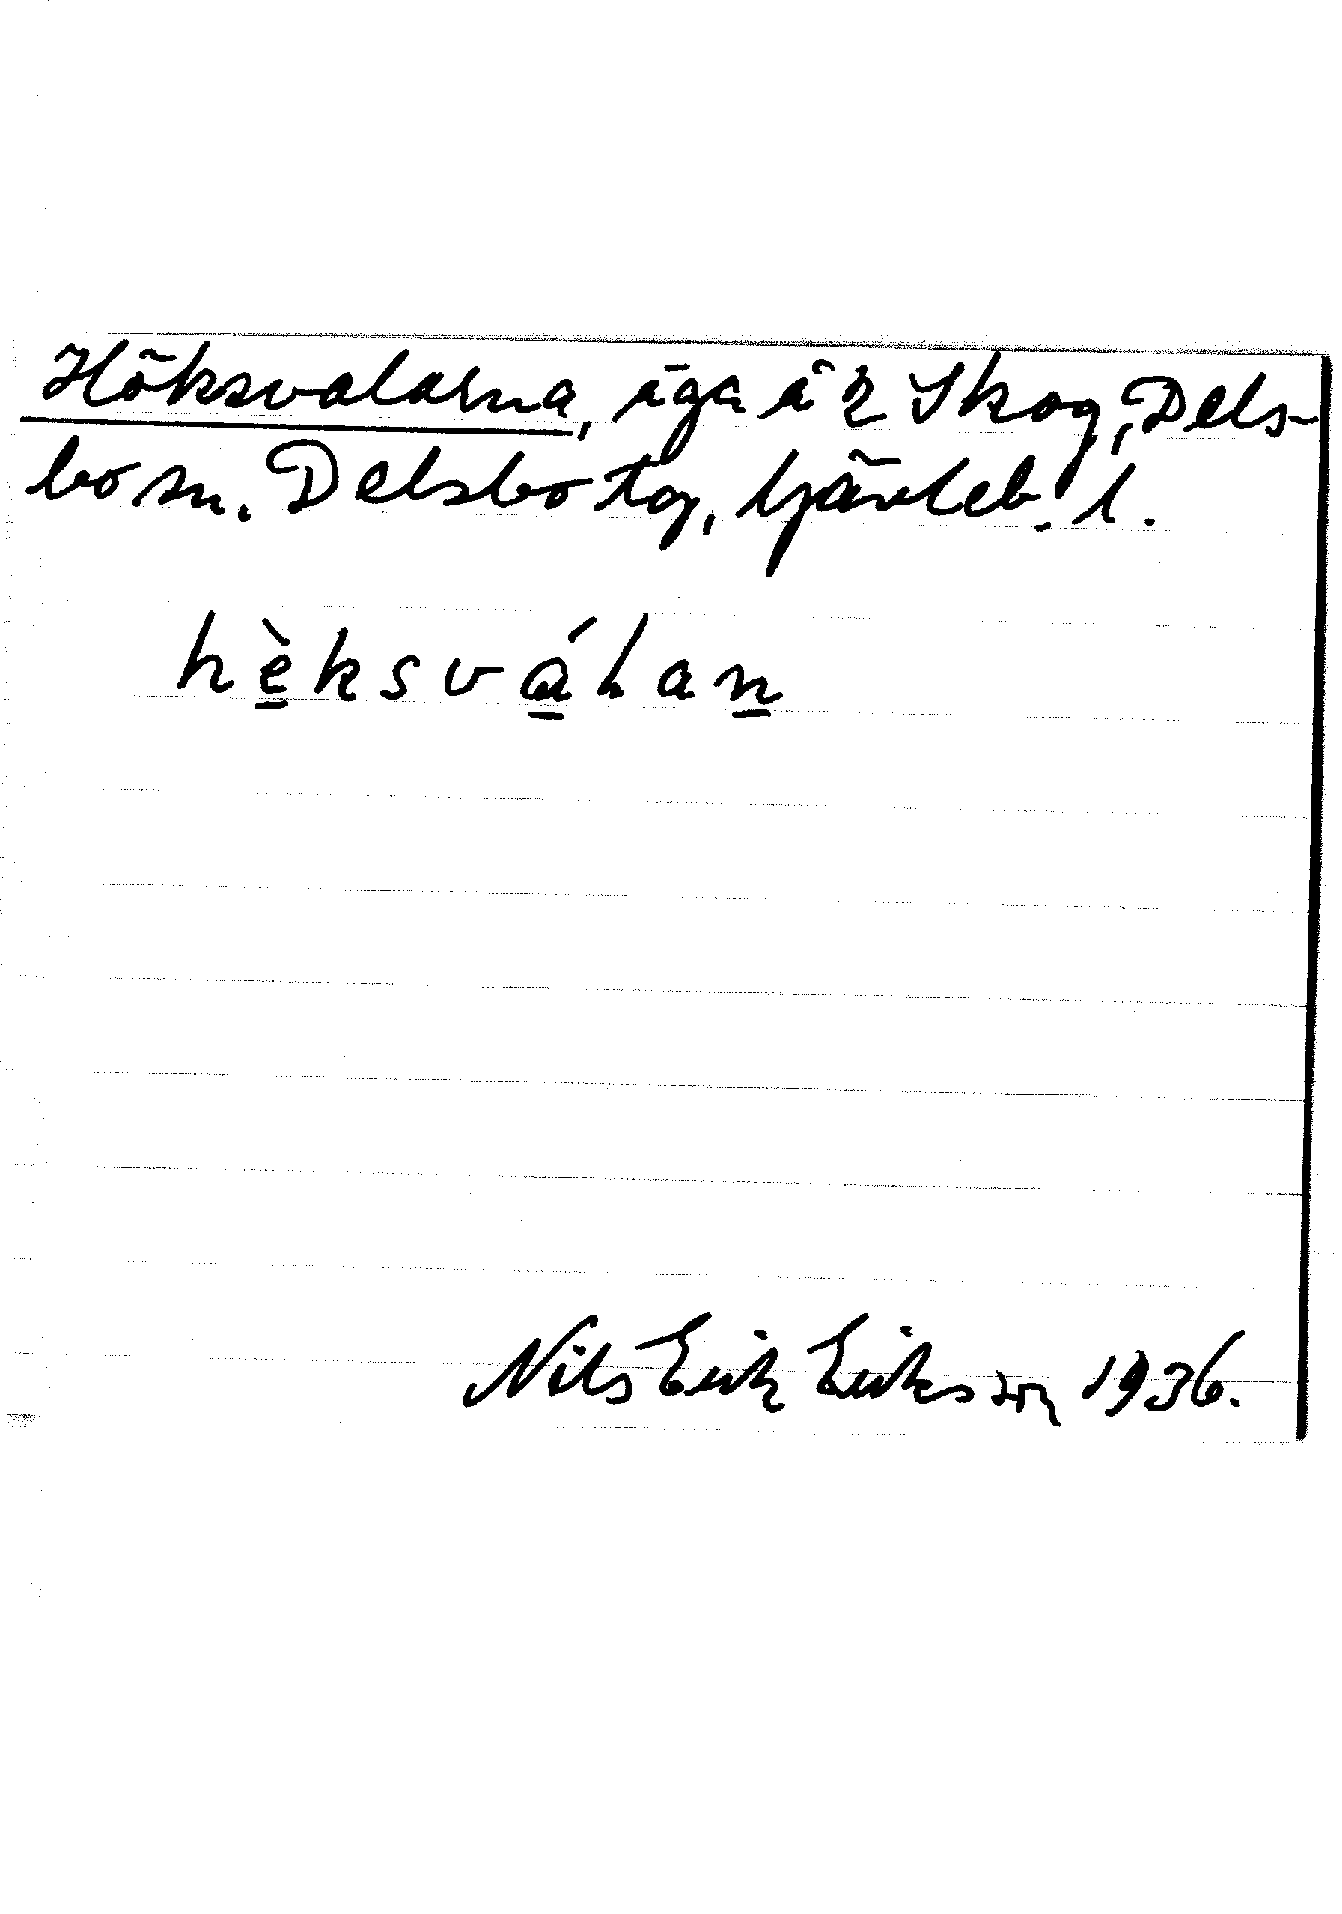 Höksvalarna, äga å 2 Skog, Dels-
bo sn. Delsbo tg, Gävleb. l.
hèksválan
Nils Erik Eriksson 1936.